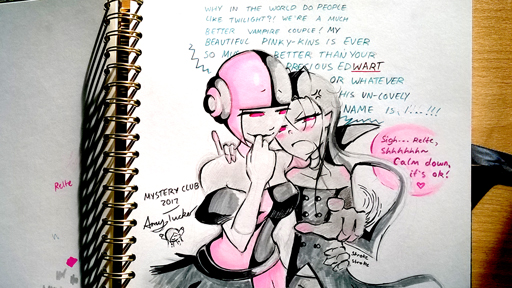 WHY IN THE WORLD DO PEOPLE
LIKE TWILIGHT?! WE'RE A MUCH
BETTER VAMPIRE COUPLE! MY
BEAUTIFUL PINKY-KINS IS EVER
SO MUCH BETTER THAN YOUR
PRECIOUS EDWART
OR WHATEVER
HIS UN-LOVELY
NAME IS, I...!!!
Sigh... Relte,
Shhhhhh~
Calm down,
it's ok!
Relte
MYSTERY CLUB
2017
Amy Tucker
stroke
stroke